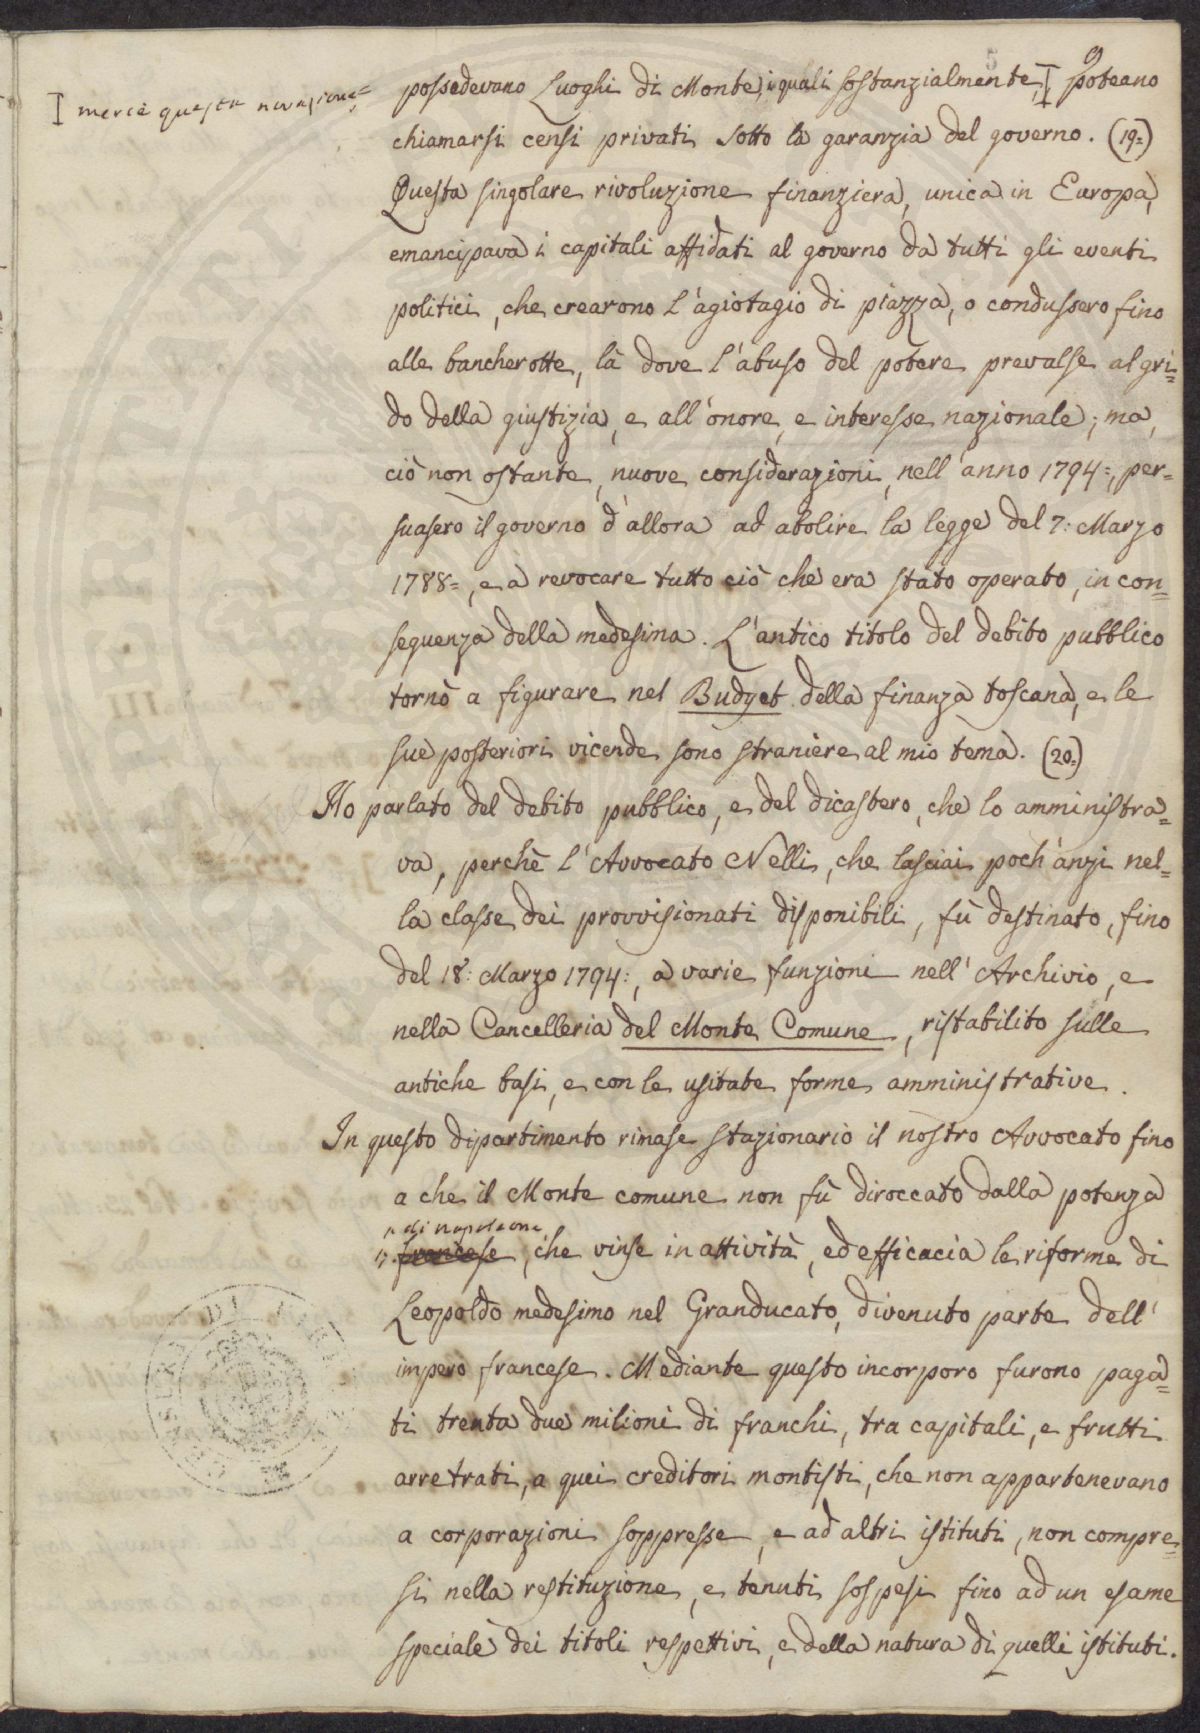 9
I mercè questa novazione=
possedevano Luoghi di Monte, i quali sostanzialmente, I poteano
chiamarsi censi privati sotto la garanzia del governo. (19=)
Questa singolare rivoluzione finanziera, unica in Europa,
emancipava i capitali affidati al governo da tutti gli eventi
politici, che crearono l'agiotagio di piazza, o condussero fino
alle bancherotte, là dove l'abuso del potere prevalse al gri=
do della giustizia, e all'onore, e interesse nazionale; ma,
ciò non ostante, nuove considerazioni, nell'anno 1794=, per=
suasero il governo d'allora ad abolire la legge del 7: Marzo
1788=, e a revocare tutto ciò che era stato operato, in con=
seguenza della medesima. L'antico titolo del debito pubblico
tornò a figurare nel Budget della finanza toscana, e le
sue posteriori vicende sono straniere al mio tema. (20=)
Ho parlato del debito pubblico, e del dicastero, che lo amministra=
va, perchè l'Avvocato Nelli, che lasciai poch'anzi nel=
la classe dei provvisionati disponibili, fù destinato, fino
del 18: Marzo 1794:, a varie funzioni nell'Archivio, e
nella Cancelleria del Monte Comune, ristabilito sulle
antiche basi, e con le usitate forme amministrative.
In questo dipartimento rimase stazionario il nostro Avvocato fino
a che il Monte comune non fù diroccato dalla potenza
di Napoleone
francese, che vinse in attività, ed efficacia le riforme di
Leopoldo medesimo nel Granducato, divenuto parte dell'
impero francese. Mediante questo incorporo furono paga=
ti trenta due milioni di franchi, tra capitali, e frutti
arretrati, a quei creditori montisti, che non appartenevano
a corporazioni soppresse, e ad altri istituti, non compre=
si nella restituzione, e tenuti sospesi fino ad un esame
speciale dei titoli respettivi, e della natura di quelli istituti.